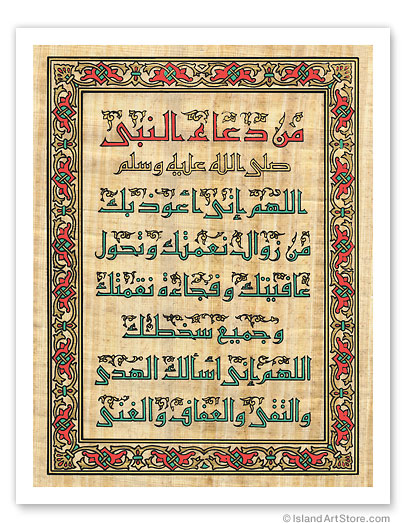 من دعاء النبى
صلى الله عليه وسلم
اللهم إنى أعوذ بك
من زوال نعمتك وتحول
عافيتك وفجاءة نقمتك
وجميع سخطك
اللهم إنى أسألك الهدى
والتقى والعفاف والغنى
© IslandArtStore.com